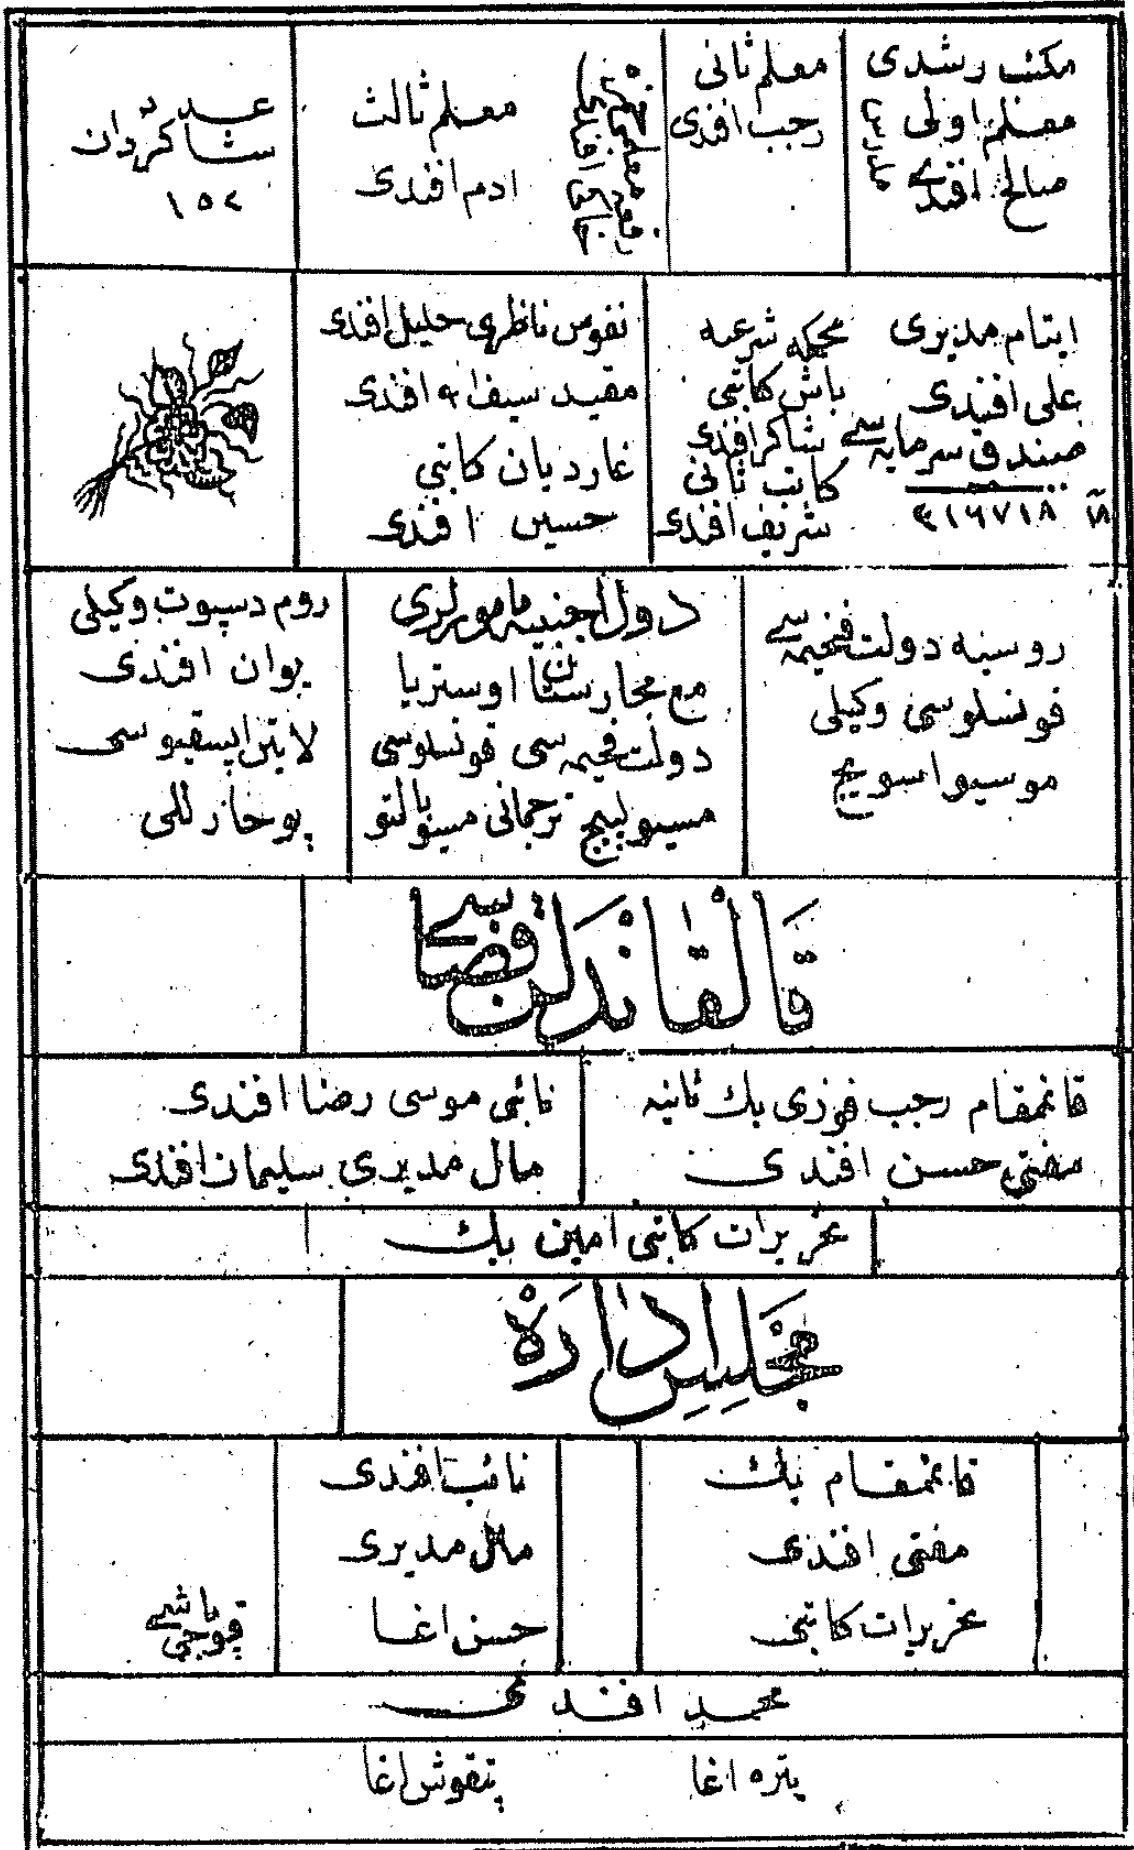 مكتب رشدى
معلم اولى
صالح افندى
معلم ثانى
رجب افندى
معلم ثالث
ادم افندى
عدد
شاكردان
١٥٢
ايتام مديرى
على افندى
صندق سرمايه سى
٣١٦٧١٨
محكمه شرعيه
باش كاتبى
شاكر افندى
كاتب ثانى
شريف افندى
نفوس ناظرى خليل افندى
مقيد سيف الله افندى
غارديان كاتبى
حسين افندى
روسيه دولت فخيمه سى
قونسلوسى وكيلى
موسيو
دول اجنبيه مامورلرى
اوستريا مع مجارستان
دولت فخيمه سى قونسلوسى
مسيو ترجمانى مسيو
روم دسپوت وكيلى
يوان افندى
لاتين ايسقپوسى
قالقاندلن قضاسى
قائممقام رجب فوزى بك ثانيه
مفتى حسن افندى
نائبى موسى رضا افندى
مال مديرى سليمان افندى
تحريرات كاتبى امين بك
مجلس اداره
قائممقام بك
مفتى افندى
تحريرات كاتبى
نائب افندى
مال مديرى
حسن اغا
قوجى باشى
محمد افندى
پتره اغا
پتقوش اغا